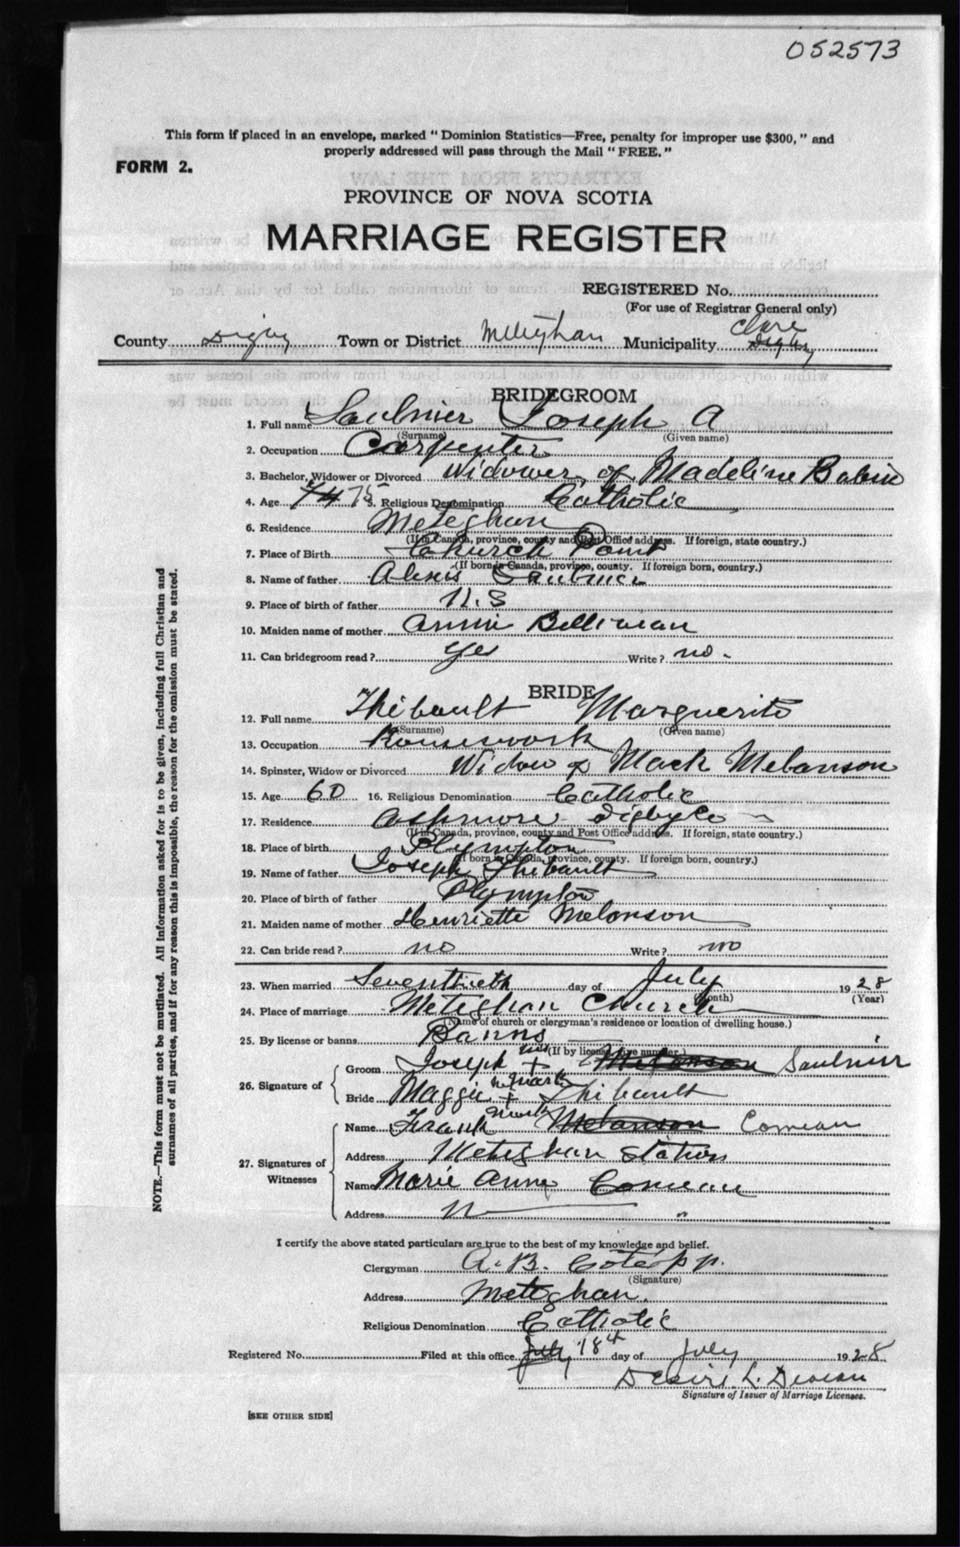 052573
This form if placed in an envelope, marked "Dominion Statistics—Free, penalty for improper use $300," and
properly addressed will pass through the Mail "FREE."
FORM 2.
PROVINCE OF NOVA SCOTIA
MARRIAGE REGISTER
REGISTERED No.
(For use of Registrar General only)
Clare
County Digby Town or District Meteghan Municipality Digby
BRIDEGROOM
1. Full name Saulnier Joseph A
(Surname) (Given name)
2. Occupation Carpenter
3. Bachelor, Widower or Divorced Widower of Madeline Babin
4. Age 74 75 5. Religious Denomination Catholic
6. Residence Meteghan
(If in Canada, province, county and Post Office address. If foreign, state country.)
7. Place of Birth Church Point
(If born in Canada, province, county. If foreign born, country.)
8. Name of father Alexis Saulnier
9. Place of birth of father N.S
10. Maiden name of mother Annie Belliveau
11. Can bridegroom read? yes Write? no
BRIDE
12. Full name Thibault Marguerite
(Surname) (Given name)
13. Occupation Housework
14. Spinster, Widow or Divorced Widow of Mack Melanson
15. Age 60 16. Religious Denomination Catholic
17. Residence Ashmore Digby Co
(If in Canada, province, county and Post Office address. If foreign, state country.)
18. Place of birth Plympton
(If born in Canada, province, county. If foreign born, country.)
19. Name of father Joseph Thibault
20. Place of birth of father Plympton
21. Maiden name of mother Henriette Melanson
22. Can bride read? no Write? no
23. When married Seventeeth day of July 1928
(Month) (Year)
24. Place of marriage Meteghan Church
(Name of church or clergyman's residence or location of dwelling house.)
25. By license or banns Banns
(If by license, give number.)
26. Signature of
Groom Joseph his + Melanson Saulnier
mark
Bride Maggie her + Thibault
mark
27. Signatures of Witnesses
Name Frank Melanson Comeau
Address Meteghan Station
Name Marie Anne Comeau
Address " "
I certify the above stated particulars are true to the best of my knowledge and belief.
Clergyman A. B. Coté p.p.
(Signature)
Address Meteghan.
Religious Denomination Catholic
Registered No. Filed at this office July 18th day of July 1928
Desire L. Deveau
Signature of Issuer of Marriage Licenses.
[SEE OTHER SIDE]
NOTE.—This form must not be mutilated. All information asked for is to be given, including full Christian and
surnames of all parties, and if for any reason this is impossible, the reason for the omission must be stated.